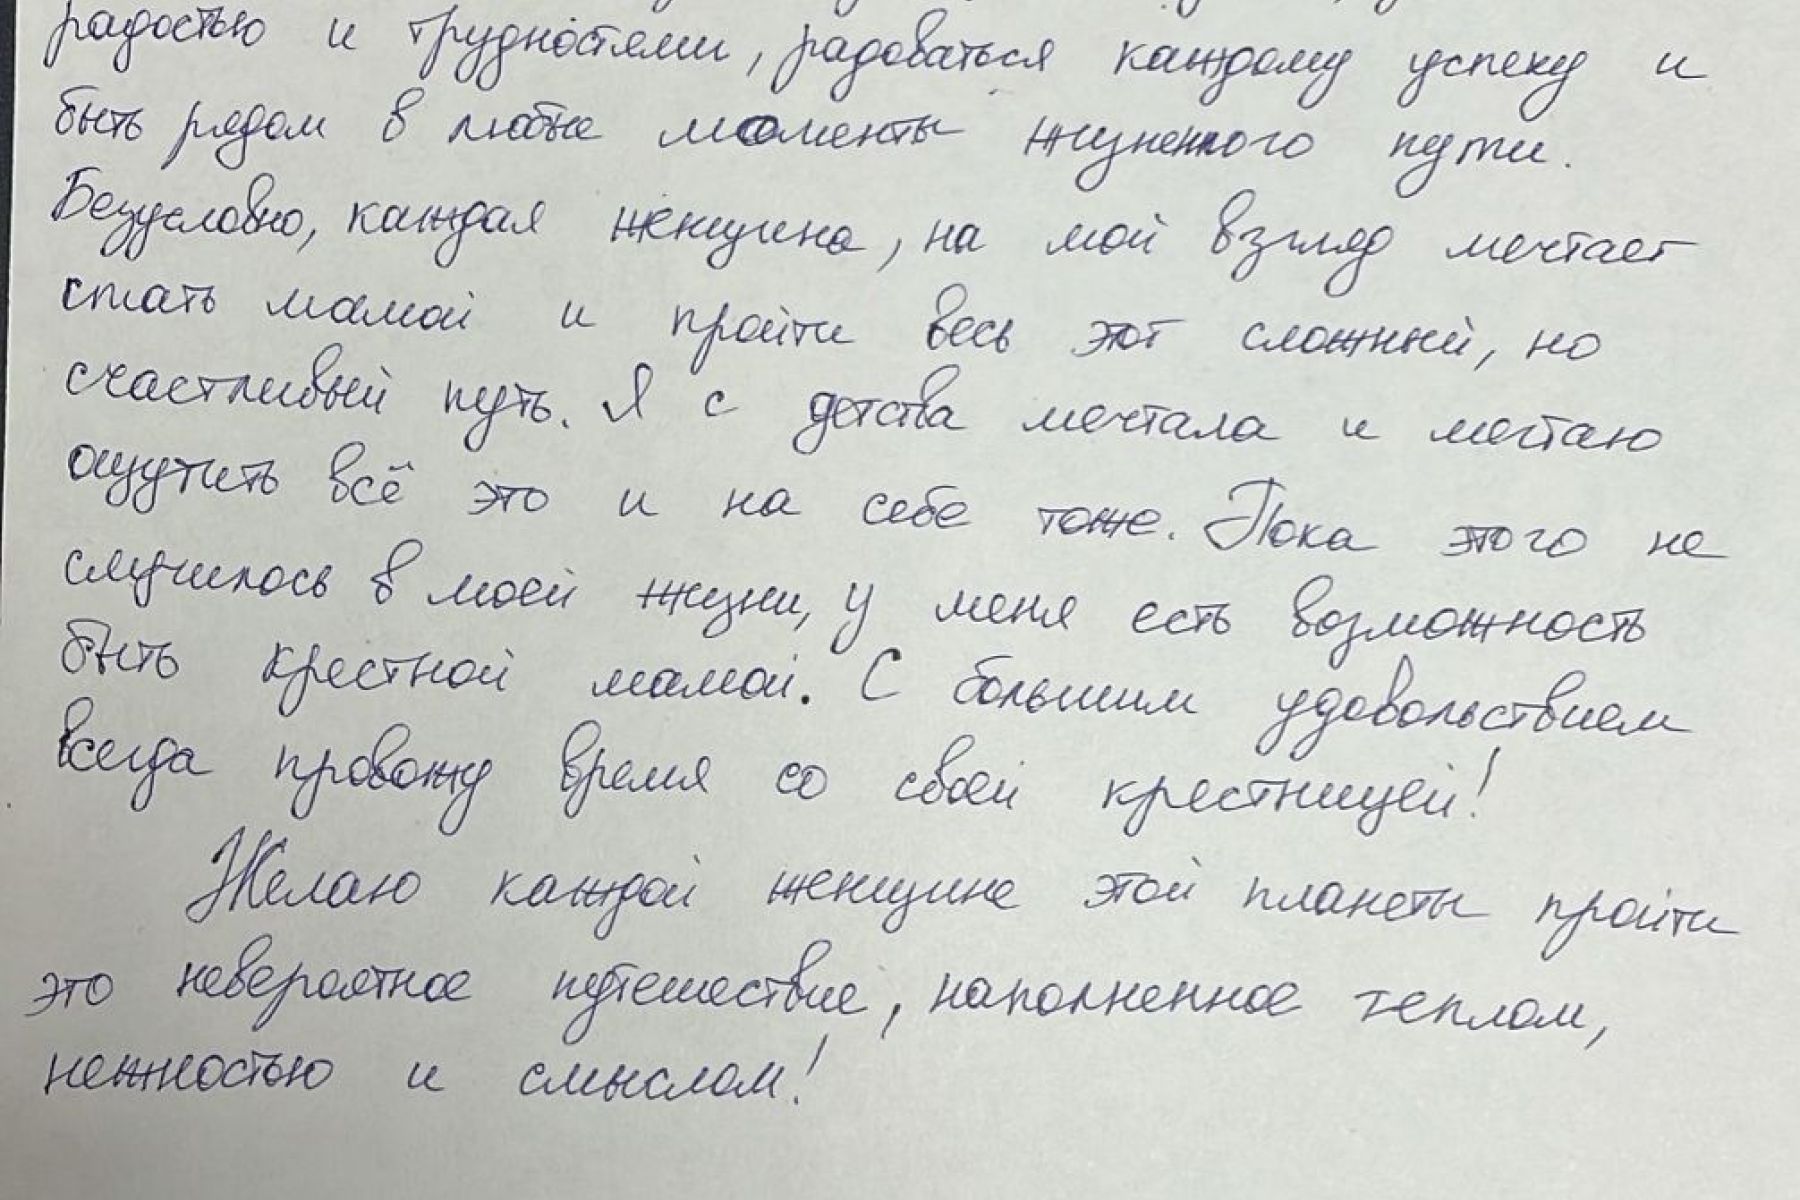 радостью и трудностями, радоваться каждому успеху и
быть рядом в любые моменты жизненного пути.
Безусловно, каждая женщина, на мой взгляд мечтает
стать мамой и пройти весь этот сложный, но
счастливый путь. Я с детства мечтала и мечтаю
ощутить всё это и на себе тоже. Пока этого не
случилось в моей жизни, у меня есть возможность
быть крестной мамой. С большим удовольствием
всегда провожу время со своей крестницей!
Желаю каждой женщине этой планеты пройти
это невероятное путешествие, наполненное теплом,
нежностью и смыслом!